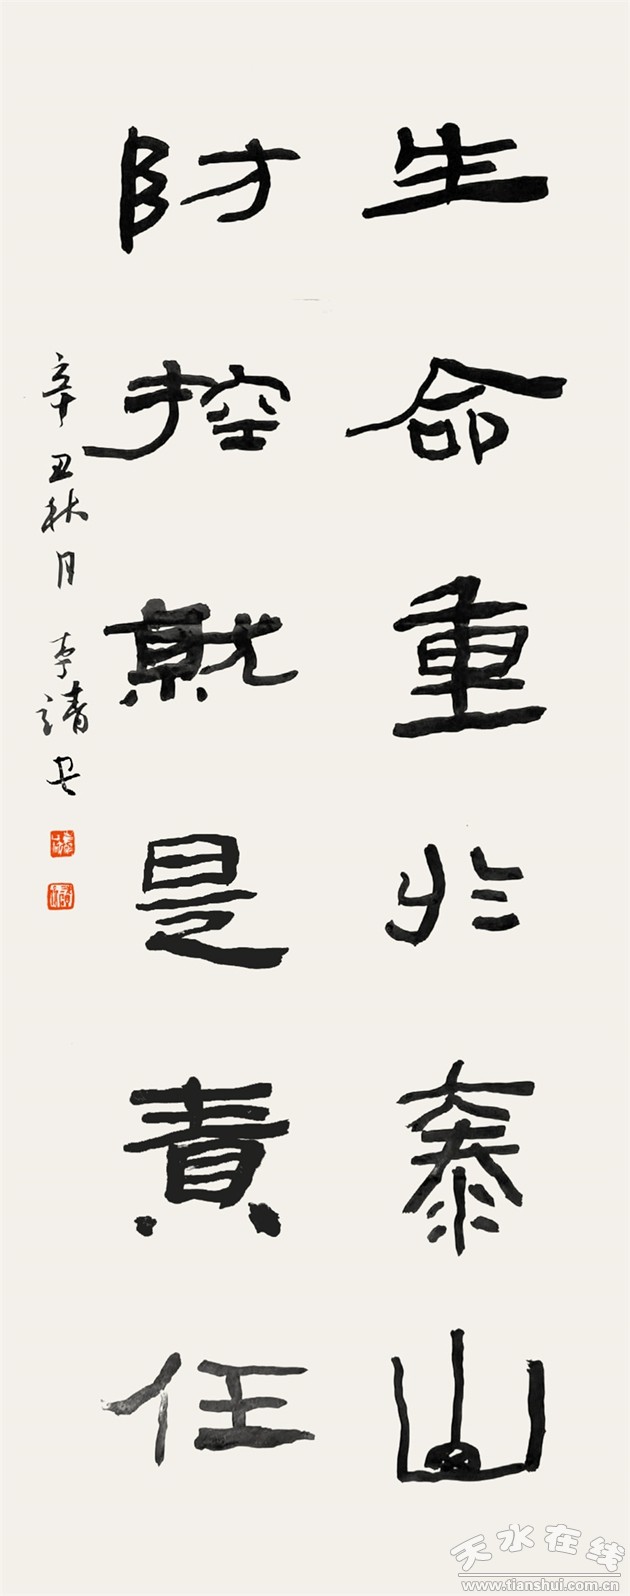 生命重於泰山
防控就是責任
辛丑秋月 李靖安
天水在线
www.tianshui.com.cn